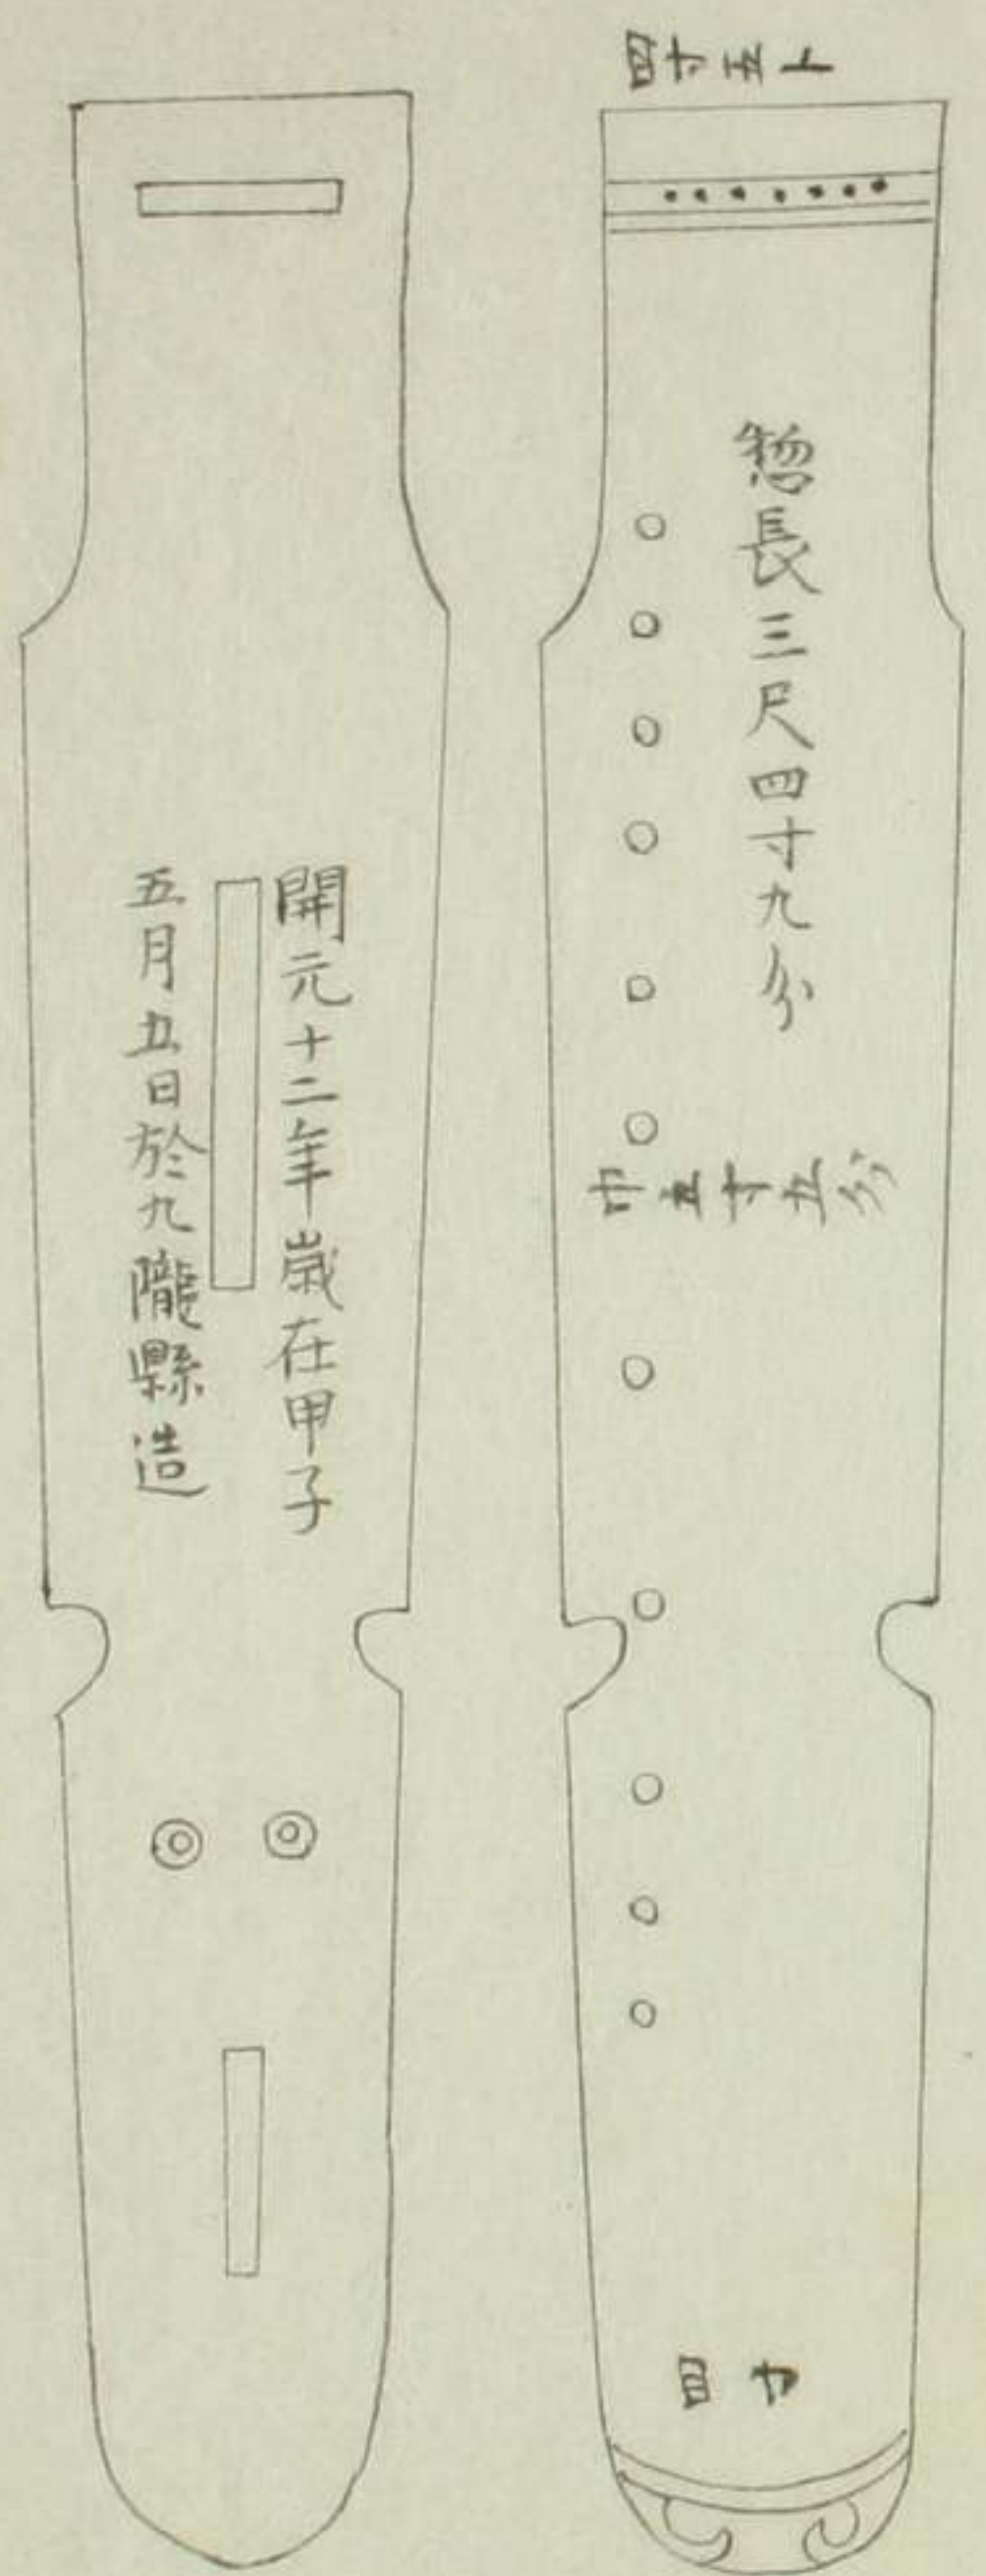 四寸五卜
惣長三尺四寸九分
巾五寸五分
四寸
開元十二年歳在甲子
五月五日於九隴縣造